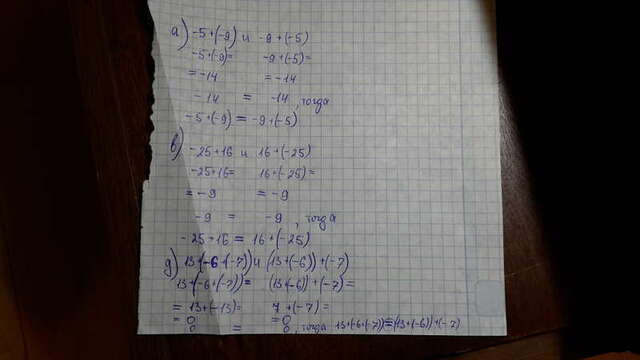 а) -5+(-9) и -9+(-5)
-5+(-9)= -9+(-5)=
=-14 =-14
-14 = -14, тогда
-5+(-9) = -9+(-5)
в) -25+16 и 16+(-25)
-25+16= 16+(-25)=
=-9 =-9
-9 = -9, тогда
-25+16 = 16+(-25)
д) 13+(-6+(-7)) и (13+(-6))+(-7)
13+(-6+(-7))= (13+(-6))+(-7)=
=13+(-13)= 7+(-7)=
=0 =0
0 = 0, тогда 13+(-6+(-7))=(13+(-6))+(-7)